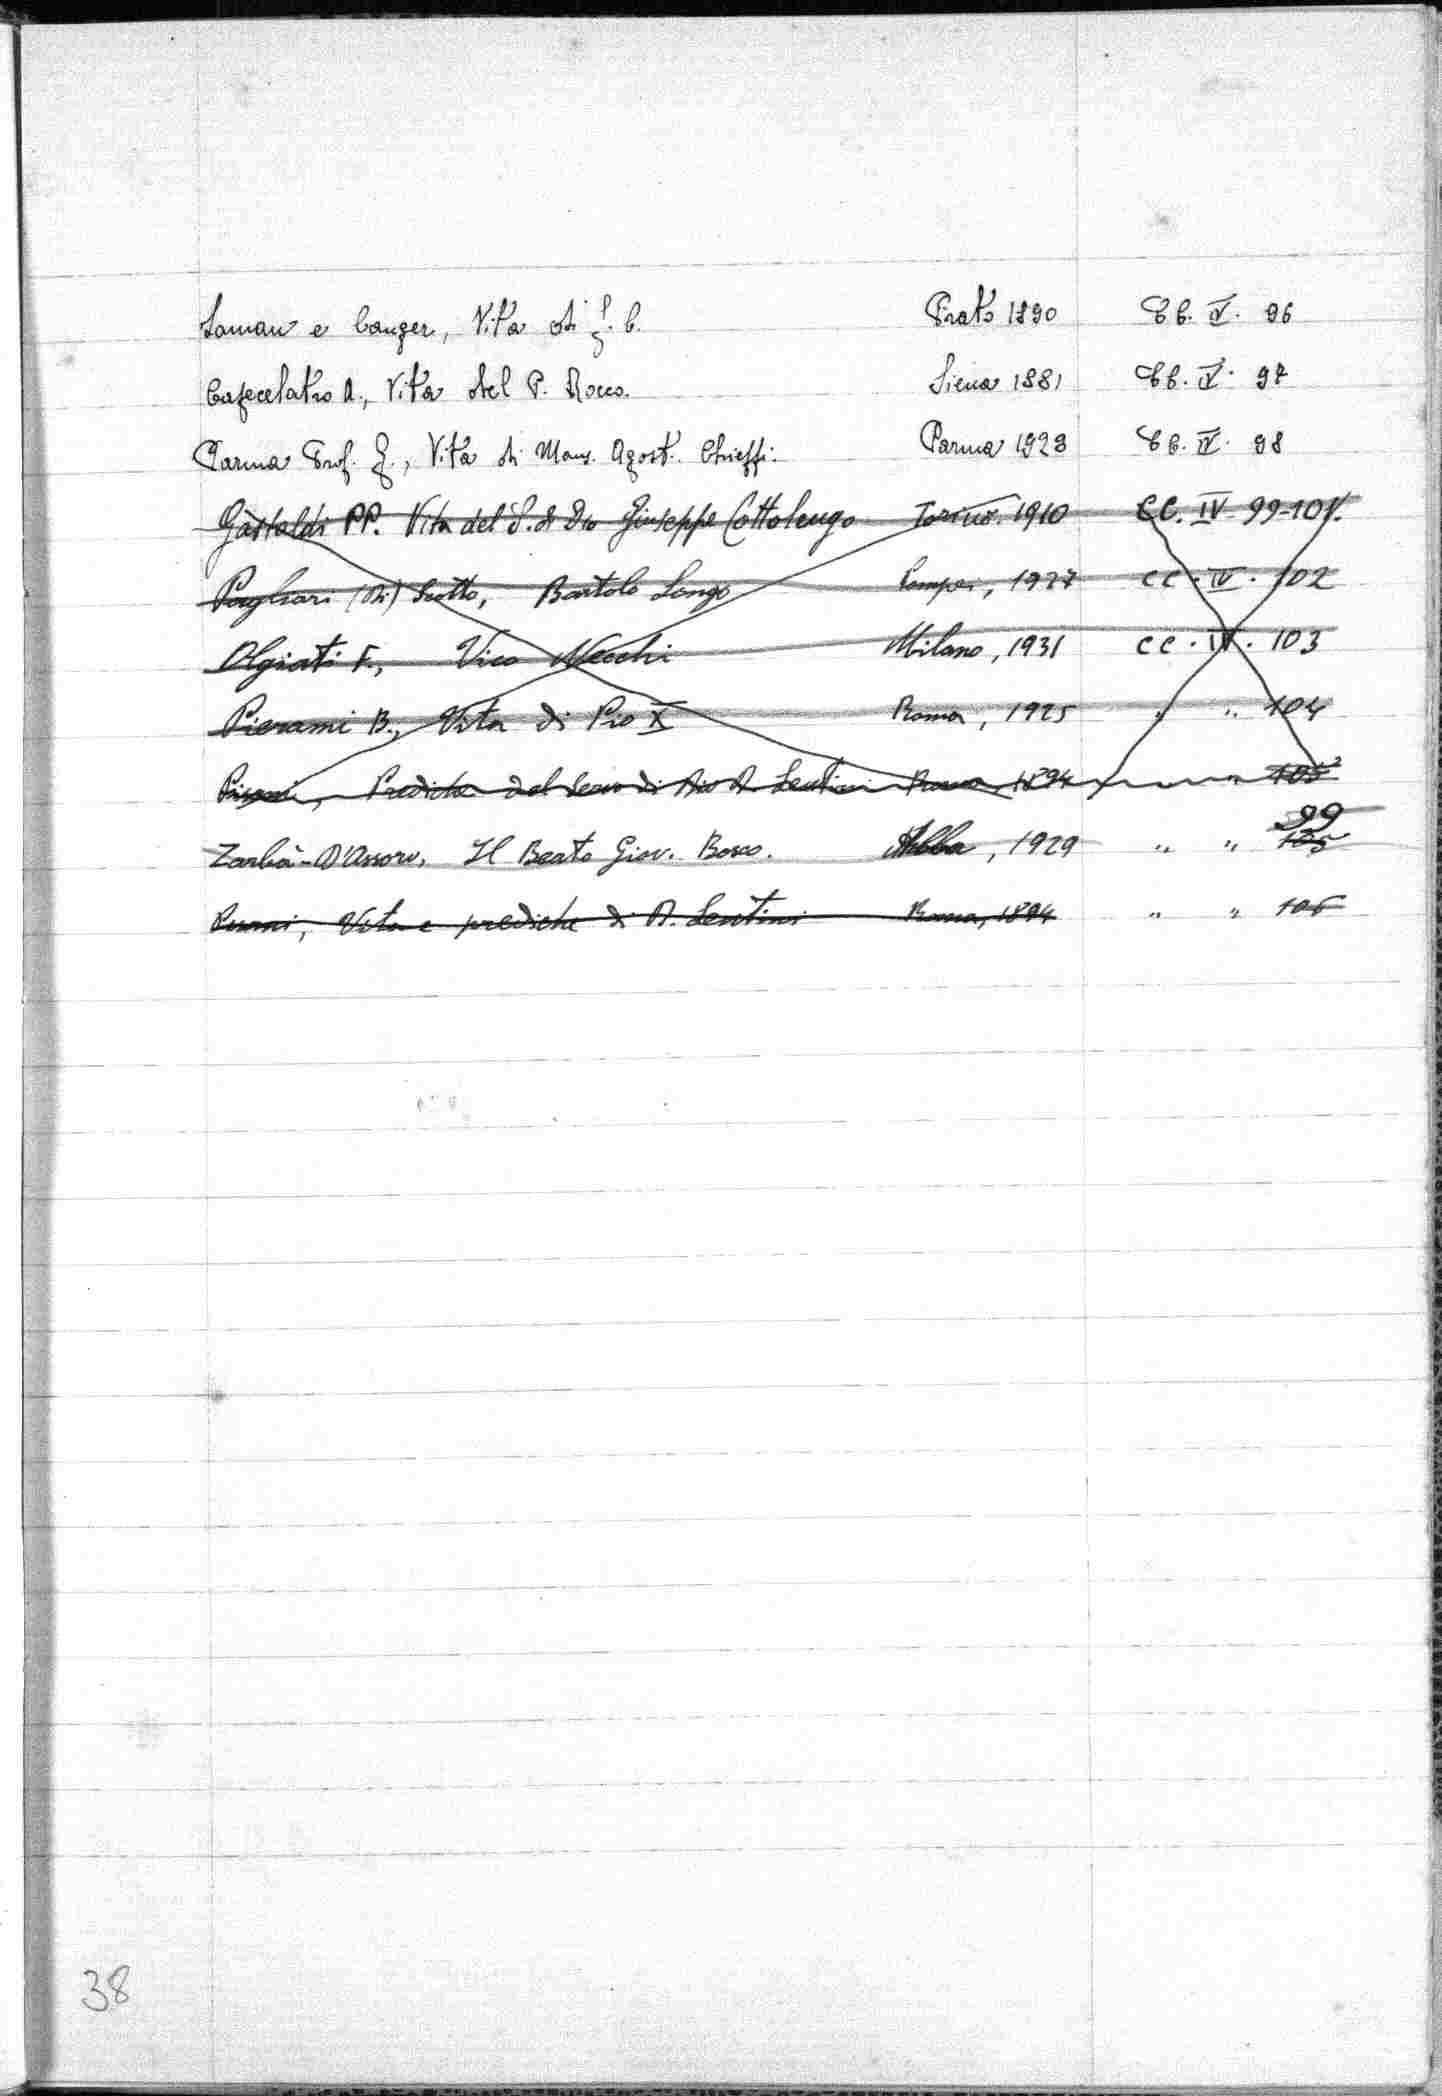 Laman e Canger, Vita di G. C. Prato 1890 CC. IV. 96
Capecelatro A., Vita del P. Rocco. Siena 1881 CC. IV. 97
Parma Prof. G., Vita di Mons. Agost. Chieppi. Parma 1923 CC. IV. 98
Gastaldi PP. Vita del S. di Dio Giuseppe Cottolengo Torino. 1910 CC. IV 99-101.
Pagliari (Di) Scotto, Bartolo Longo Pompei, 1927 CC. IV. 102
Olgiati F., Vico Necchi Milano, 1931 CC. IV. 103
Pierami B., Vita di Pio X Roma, 1925 " " 104
Prediche del Servo di Dio A. Lentini Roma 1894 " 105
Zarbà-D'Assoro, Il Beato Giov. Bosco. Alba, 1929 " " 105 99
Vita e prediche di D. Lentini Roma, 1894 " " 106
38